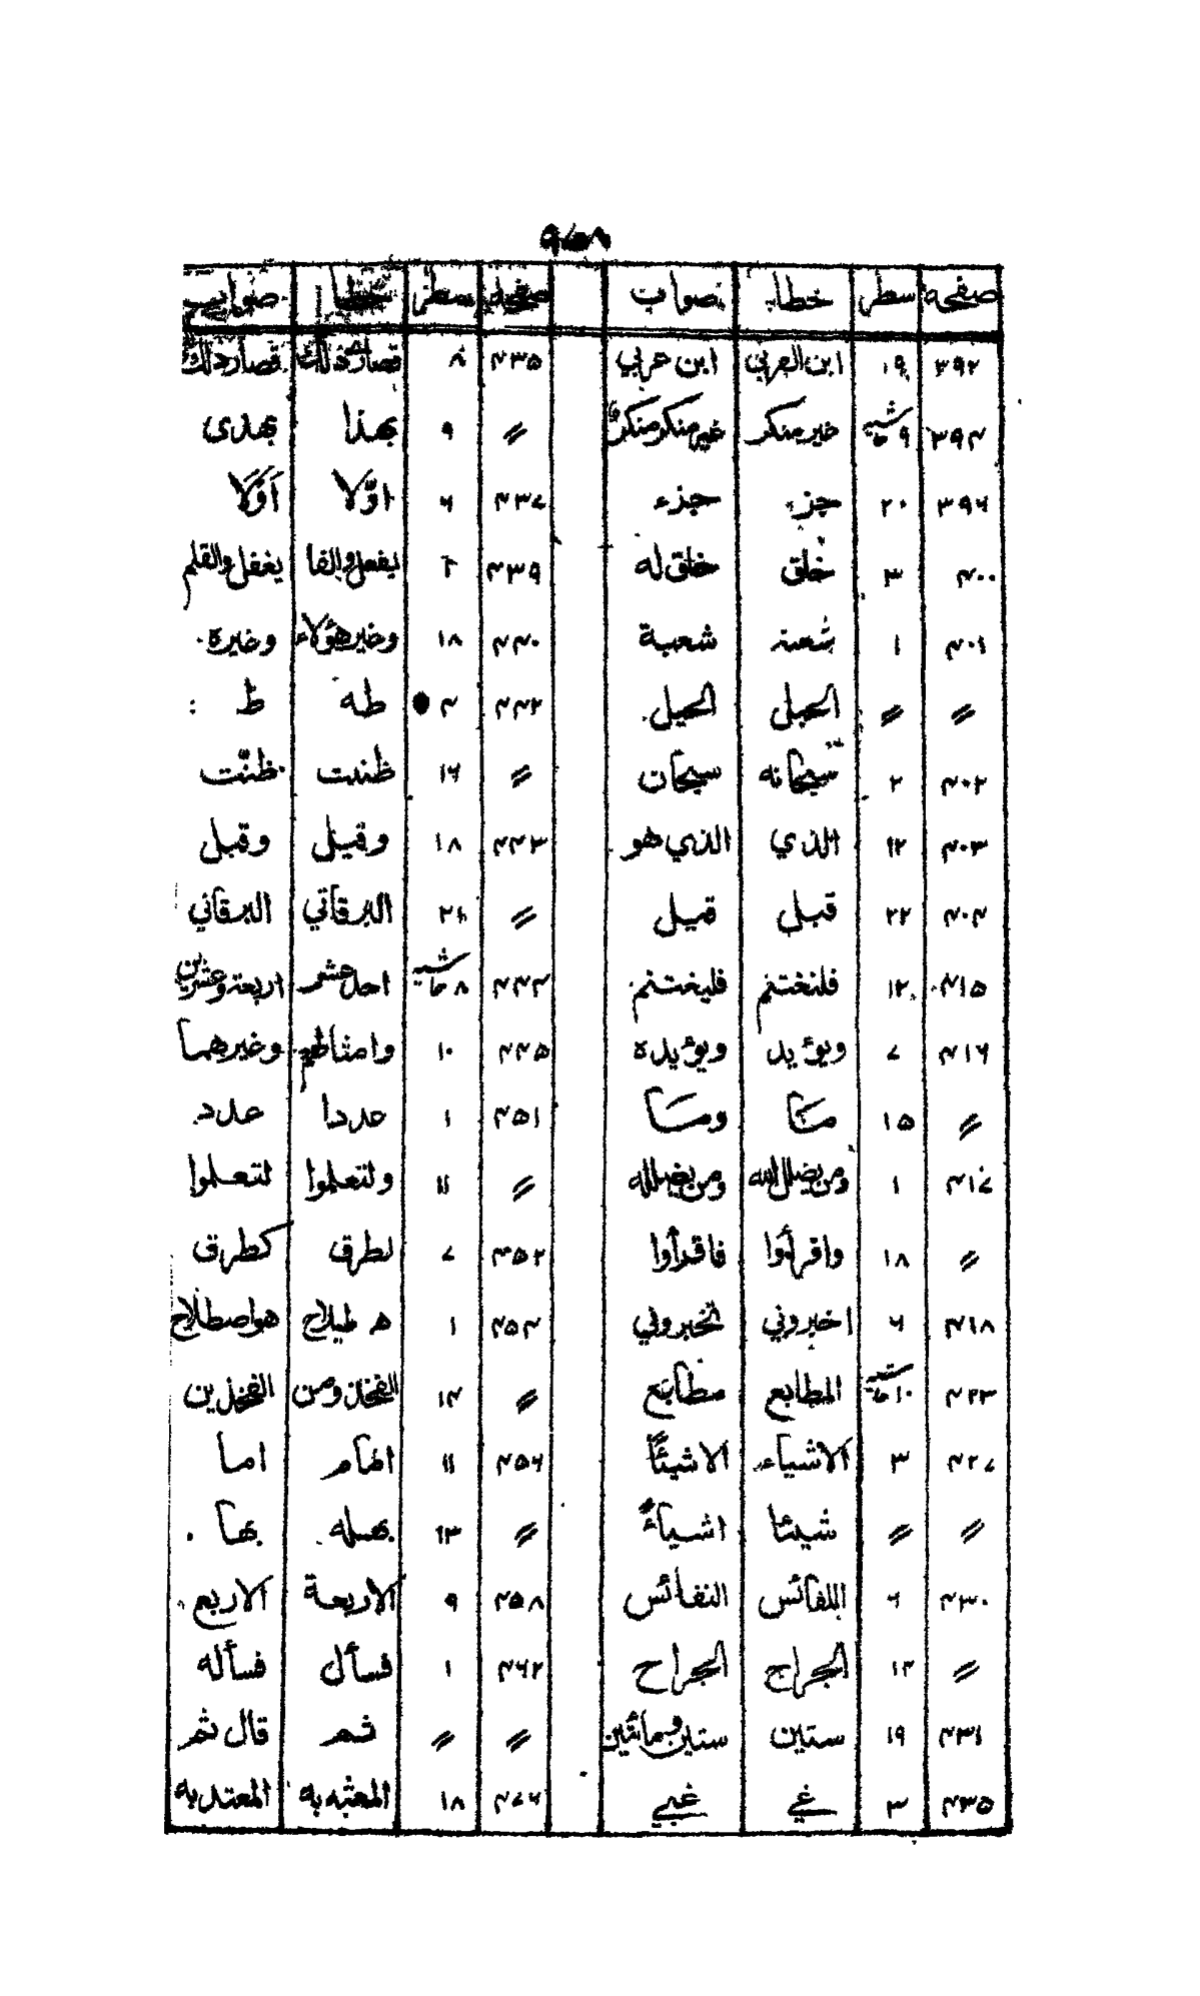 صفحه سطر خطاء صواب صفحه سطر خطا صواب
۳۹۲ ۱۹ ابن العربي ابن عربي ۴۳۵ ۸ قصار ذلك
۳۹۴ ۹ حاشیه خير منكر غير منكر منكرًا ۰ ۴۳۵ ۹ بهذا بهدى
۳۹۶ ۲۰ جزء جزء ۴۳۷ ۶ اوّلا أوَلا
۴۰۰ ۳ خلق خلق له ۴۳۹ ۲ يفعل والفا يغفل والقلم
۴۰۱ ۱ شعبة ۴۴۰ ۱۸ وخير هؤلاء وخيره
〃 〃 الحبلى الحيل ۴۴۲ ۴ طه ط
۴۰۲ ۲ سبحانه سبحان 〃 ۱۶ ظننت ظنّت
۴۰۳ ۱۲ الذي الذي هو ۴۴۳ ۱۸ وقيل وقبل
۴۰۴ ۲۲ قبل قيل 〃 ۲۱ البرقاتي البرقاني
۴۱۵ ۱۲ فلنغتنم فليغتنم ۴۴۴ ۸ حاشیه احد عشر اربعة وعشرين
۴۱۶ ۷ ويؤيد ويؤيده ۴۴۵ ۱۰ وامثالهم وغيرهما
〃 ۱۵ منا ومنا ۴۵۱ ۱ عددا عدد
۴۱۷ ۱ ومن يضلل الله ومن يضلله 〃 ۱۱ ولتعلموا لتعلموا
〃 ۱۸ واقرأوا فاقرأوا ۴۵۲ ۷ لطرق كطرق
۴۱۸ ۶ اخبروني تخبروني ۴۵۴ ۱ هو اصطلاح
۴۲۳ ۱۰ حاشیه المطابع مطابع 〃 ۱۴ الفخذ ومن الفخذين
۴۲۷ ۳ الاشياء الاشيئًا ۴۵۶ ۱۱ الهام اما
〃 〃 شيئا اشياءً 〃 ۱۳ بهله بها
۴۳۰ ۶ اللفائس النفائس ۴۵۸ ۹ الاربعة الاربع
〃 ۱۴ الجراج الجراح ۴۶۲ ۱ فسأل فسأله
۴۳۱ ۱۹ ستين ستين ومائتين 〃 〃 ثم قال ثم
۴۳۵ ۳ غي غبي ۴۷۶ ۱۸ المعتبه به المعتد به